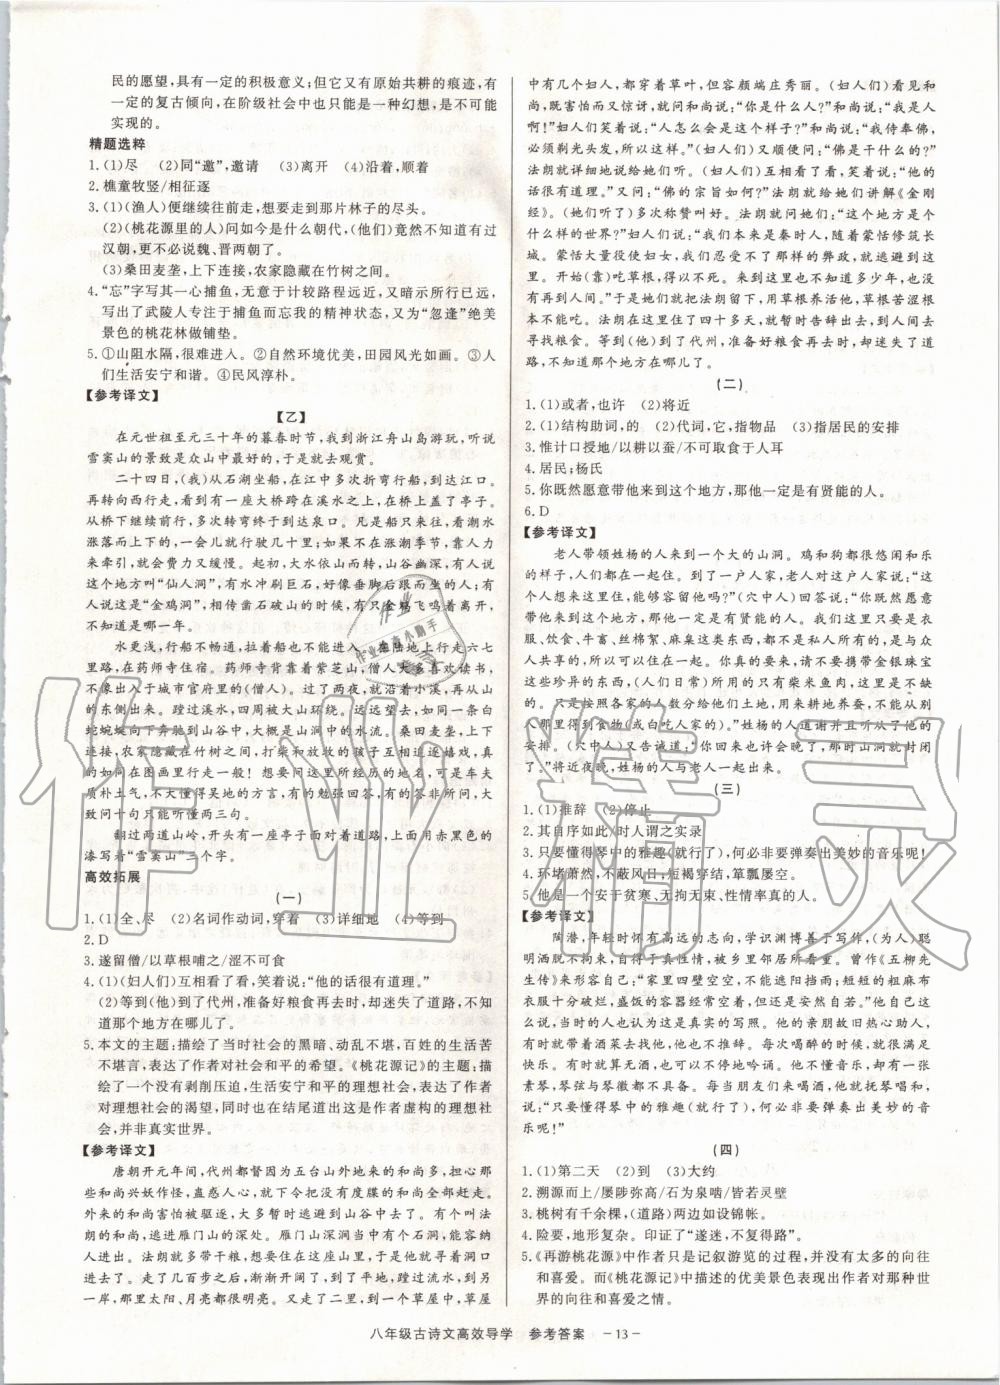 民的愿望,具有一定的积极意义;但它又有原始共耕的痕迹,有
一定的复古倾向,在阶级社会中也只能是一种幻想,是不可能
实现的。
精题选粹
1.(1)尽 (2)同“邀”,邀请 (3)离开 (4)沿着,顺着
2.樵童牧竖/相征逐
3.(1)(渔人)便继续往前走,想要走到那片林子的尽头。
(2)(桃花源里的人)问如今是什么朝代,(他们)竟然不知道有过
汉朝,更不必说魏、晋两朝了。
(3)桑田麦垄,上下连接,农家隐藏在竹树之间。
4.“忘”字写其一心捕鱼,无意于计较路程远近,又暗示所行已远,
写出了武陵人专注于捕鱼而忘我的精神状态,又为“忽逢”绝美
景色的桃花林做铺垫。
5.①山阻水隔,很难进入。②自然环境优美,田园风光如画。③人
们生活安宁和谐。④民风淳朴。
【参考译文】
【乙】
在元世祖至元三十年的暮春时节,我到浙江舟山岛游玩,听说
雪窦山的景致是众山中最好的,于是就去观赏。
二十四日,(我)从石湖坐船,在江中多次折弯行船,到达江口。
再转向西行走,看到有一座大桥跨在溪水之上,在桥上盖了亭子。
从桥下继续前行,多次转弯终于到达泉口。凡是船只来往,看潮水
涨落而上下的,一会儿就行驶几十里;如果不在涨潮季节,靠人力
来牵引,就会费力又缓慢。起初,大山依傍在岸两旁,山谷幽深,有人
指着一处告诉我叫“仙人洞”,有水冲刷巨石,好像垂脚后跟而坐的样
子;还说这是“金鸡洞”,相传凿石破山的时候,有只金鸡飞鸣着离开,
不知道是哪一年。
水更浅,行船不畅通,改在陆地上行走六七
里路,在药师寺住宿。药师寺背靠着紫芝山,僧人大多喜欢读书,
不像出入于城市官府里的(僧人)。过了两夜,就沿着小溪,再从山
的东侧出来。蹚过溪水,四周大山环绕。远远望去,像一条白
蛇蜿蜒向下奔跑到山谷中的,是山洞中的水流。桑田麦垄,上下
连接,农家隐藏在竹树之间,打柴和放牧的孩子互相追逐嬉戏,真
的如同在图画里行走一般!想要问所经历的地名,可是村夫
质朴土气,不大懂得吴地的方言,有的勉强回答,有的数问不答,大
致问十句只能听懂两三句。
翻过两道山岭,开头有一座亭子面对着道路,上面用赤黑色的
漆写着“雪窦山”三个字。
高效拓展
(一)
1.(1)全、尽 (2)名词作动词,穿着 (3)详细地 (4)等到
2.D
3.遂留僧/以草根哺之/涩不可食
4.(1)(妇人们)互相看了看,笑着说:“他的话很有道理。”
(2)等到(他)到了代州,准备好粮食再去时,却迷失了道路,不知
道那个地方在哪儿了。
5.本文的主题:描绘了当时社会的黑暗、动乱不堪,百姓的生活苦
不堪言,表达了作者对社会和平的希望。《桃花源记》的主题:描
绘了一个没有剥削压迫,生活安宁和平的理想社会,表达了作者
对理想社会的渴望,同时也在结尾道出这是作者虚构的理想社
会,并非真实世界。
【参考译文】
唐朝开元年间,代州都督因为五台山外地来的和尚多,恐怕那
些和尚兴妖作怪,蛊惑人心,就把没有度牒的和尚全部赶走。
外来的和尚害怕被驱逐,大多暂时逃避到山谷中去了。有个叫法
朗的和尚,逃进雁门山的深处。雁门山深涧当中有个石洞,能容
纳人出入。法朗就多带干粮,想要住在这座山里,于是他就寻着洞口
进去了。走了几百步之后,渐渐开阔了,到了平地,蹚过流水,到另
一岸,那里太阳、月亮都很明亮。又走了二里,到一个草屋中,草屋
中有几个妇人,都穿着草叶,但容颜端庄秀丽。(妇人们)看见和
尚,既害怕而又惊讶,就问和尚说:“你是什么人?”和尚说:“我是人
啊!”妇人们笑着说:“人怎么会是这个样子?”和尚说:“我侍奉佛,
必须剃光头发,所以这样。”(妇人们)又顺便问:“佛是干什么的?”
法朗就详细地说给她们听。(妇人们)互相看了看,笑着说:“他的
话很有道理。”又问:“佛的宗旨如何?”法朗就给她们讲解《金刚
经》。(她们)听了多次称赞叫好。法朗就问她们:“这个地方是个
什么样的世界?”妇人们说:“我们本来是秦时人,随着蒙恬修筑长
城。蒙恬大量役使妇女,我们忍受不了那样的弊政,就逃避到这
里。开始(靠)吃草根,得以不死。来到这里也不知道多少年,也没
有再到人间。”于是她们就把法朗留下,用草根养活他,草根苦涩根
本不能吃。法朗在这里住了四十多天,就暂时告辞出去,到人间去
寻找粮食。等到(他)到了代州,准备好粮食再去时,却迷失了道
路,不知道那个地方在哪儿了。
(二)
1.(1)或者,也许 (2)将近
2.(1)结构助词,的 (2)代词,它,指物品 (3)指居民的安排
3.惟计口授地/以耕以蚕/不可取食于人耳
4.居民;杨氏
5.你既然愿意带他来到这个地方,那他一定是有贤能的人。
6.D
【参考译文】
老人带领姓杨的人来到一个大的山洞。鸡和狗都很融洽和乐
的样子,人们都在一起居住。到了一户人家,老人对这户人家说:“这
个人想要来这里居住,能够容留他吗?”(穴中人)回答说:“你既然愿意
带他来到这个地方,那他一定是有贤能的人。我们这里凡是衣
服、饮食、牛畜、丝棉絮、麻枲这类东西,都不是私人所有的,是与众
人共享的,因此可以一起居住。你果真能来,不要携带金银珠宝
这些珍异的东西。(人们日常)所用的只有柴米鱼肉,这里是不缺
的。只是按照各家的人数分给他们土地,用来耕地养蚕,不能从别
人那里得到食物(或白吃人家)。”姓杨的人道谢并且听从了他的
安排。(穴中人)又告诫道:“你回来也许会晚了,那时山洞就封闭
了。”将近夜晚,姓杨的人与老人一起出来。
(三)
1.(1)推辞 (2)停止
2.其自序如此/时人谓之实录
3.只要懂得琴中的雅趣(就行了),何必非要弹奏出美妙的音乐呢!
4.环堵萧然,不蔽风日;短褐穿结,箪瓢屡空。
5.他是一个安于贫寒、无拘无束、性情率真的人。
【参考译文】
陶潜,年轻时怀有高远的志向,学识渊博善于写作,(为人)聪
明洒脱不拘束,自得于真性情,被乡里邻居所看重。曾作《五柳先
生传》来形容自己:“家里四壁空空,不能遮阳挡雨;短短的粗麻布
衣服十分破烂,盛饭的容器经常空着,但仍安然自得。”他自己这
么说,当时的人也认为这是真实的写照。他的亲朋故旧热心助人,
有时就带着酒菜去找他,他也不推辞。每次喝醉的时候,就很开心
快乐。有时就算无酒,也可以不停地吟诵。(他)还时常带一张
素琴,琴弦与琴徽都不具备。每当朋友喝酒聚会,他就抚琴唱和,
说:“只要懂得琴中的雅趣(就行了),何必非要弹奏出美妙的音
乐呢!”
(四)
1.(1)第二天 (2)到 (3)大约
2.溯源而上/屡陟弥高/石为泉啮/皆若灵璧
3.桃树有千余棵,(道路)两边如设锦帐。
4.险要,地形复杂。印证了“遂迷,不复得路”。
5.《再游桃花源》中作者只是记叙游览的过程,并没有太多的向往
和喜爱。而《桃花源记》中描述的优美景色表现出作者对那种世
界的向往和喜爱之情。
八年级古诗文高效导学 参考答案 －13－
作业精灵